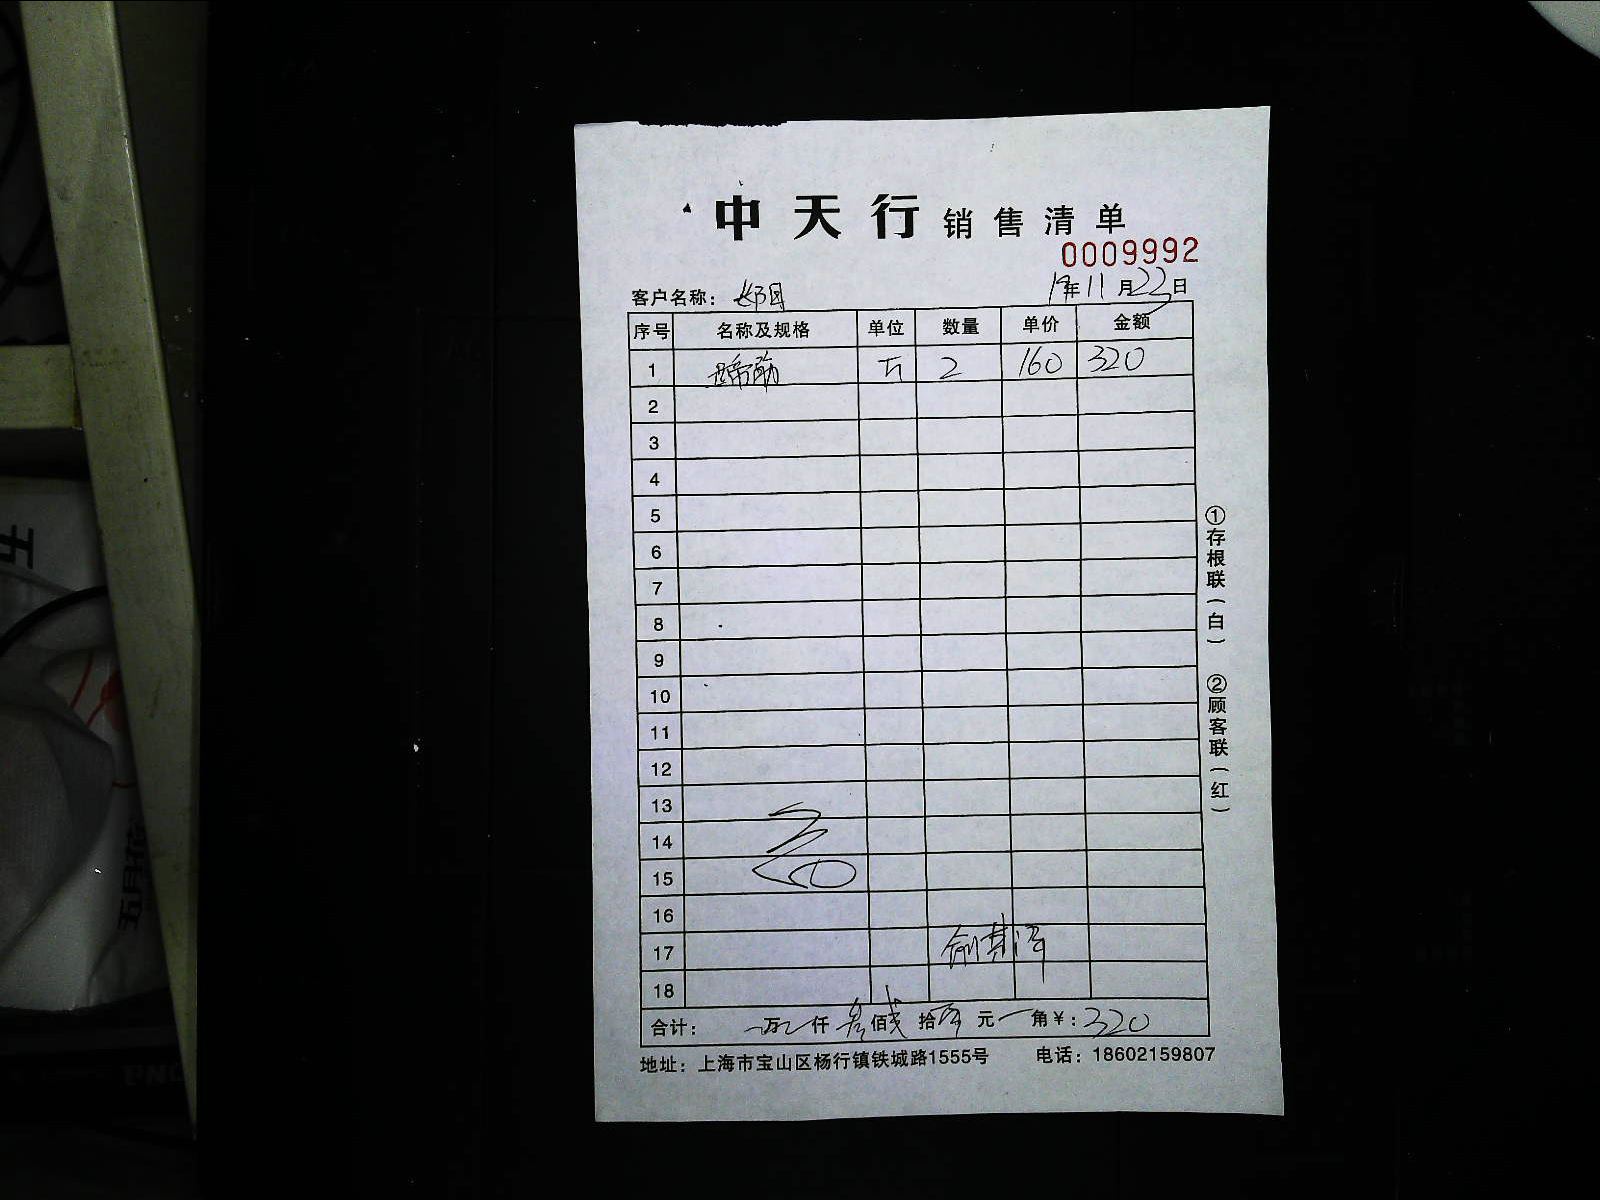 中天行 销售清单
0009992
客户名称： 19年11月22日
序号 名称及规格 单位 数量 单价 金额
1 蹄筋 2 160 320
2
3
4
5
6
7
8
9
10
11
12
13
14
15
16
17
18
合计： 万 仟 叁佰贰拾零元 角￥：320
地址：上海市宝山区杨行镇铁城路1555号 电话：18602159807
①存根联（白） ②顾客联（红）
五月花